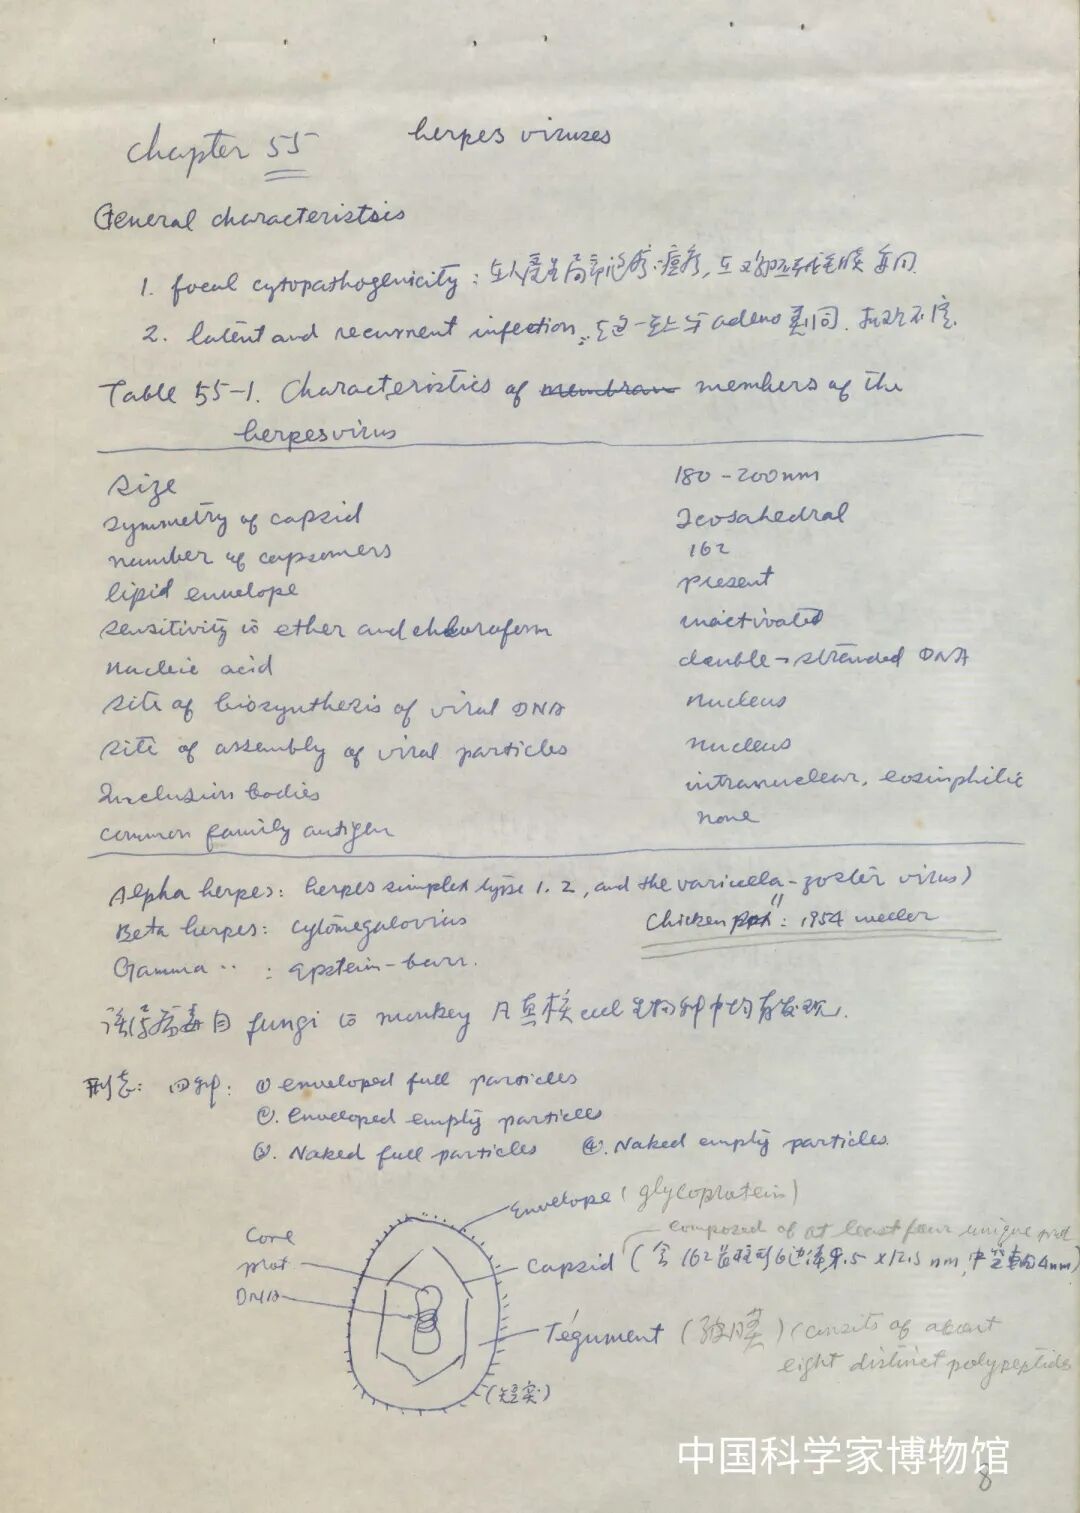 chapter 55 herpes viruses
General characteristsis
1. focal cytopathogenicity:
2. latent and recurrent infection. 与adeno类同.
Table 55-1. Characteristics of membran members of the
herpesvirus
Size 180-200nm
Symmetry of capsid Icosahedral
number of capsomers 162
lipid envelope present
sensitivity to ether and chloroform inactivated
nucleic acid double-stranded DNA
site of biosynthesis of viral DNA nucleus
site of assembly of viral particles nucleus
Inclusion bodies intranuclear, eosinphilic
common family antigen none
Alpha herpes: herpes simplex type 1. 2, and the varicella-zoster virus)
Beta herpes: cytomegalovirus Chicken pox: 1954 weller
Gamma ·· : epstein-barr.
病毒自 fungi to monkey 真核cell生物种中均有发现.
形态: 四种: ① enveloped full particles
②. Enveloped empty particles
③. Naked full particles ④. Naked empty particles.
Envelope (glycoprotein)
composed of at least four unique prot
Core
prot
Capsid (含162
DNA
Tegument (被膜) (consits of about
eight distinct polypeptids
中国科学家博物馆
8